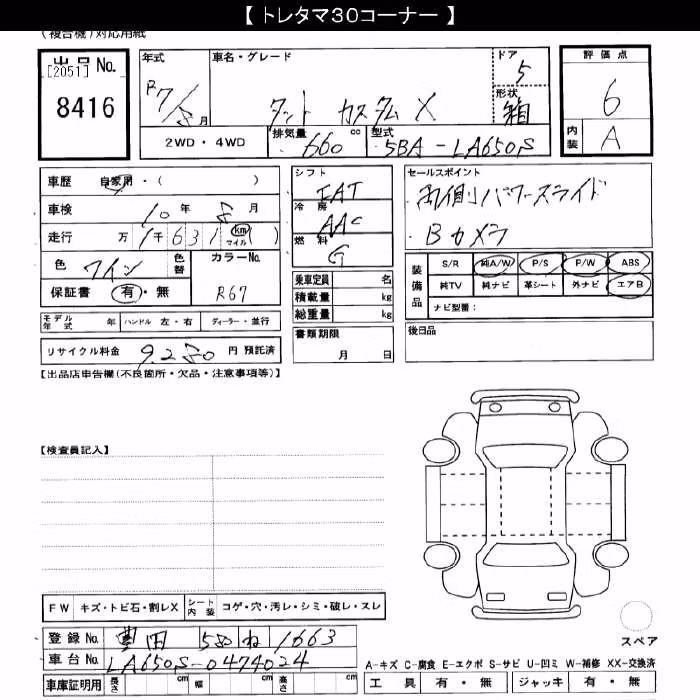 【 トレタマ30コーナー 】
(複合機) 対応用紙
出品 No.
[2051]
8416
年式
R7/8月
車名・グレード
タント カスタム X
ドア
5
形状
箱
評価点
6
内装
A
2WD・4WD
排気量
660 cc
型式
5BA-LA650S
車歴 自家用・( )
車検 10年 8月
走行 万 1千631 (km マイル)
色 ワイン 色替
カラーNo.
R67
保証書 有・無
モデル年式 年 ハンドル 左・右 ディーラー・並行
リサイクル料金 9,280 円 預託済
シフト
IAT
冷房
AAC
燃料
G
乗車定員 名
積載量 kg
総重量 kg
書類期限
月 日
セールスポイント
両側パワースライド
Bカメラ
装備品
S/R 純A/W P/S P/W ABS
純TV 純ナビ 革シート 外ナビ エアB
ナビ型番:
後日品
【出品店申告欄(不良箇所・欠品・注意事項等)】
【検査員記入】
FW キズ・トビ石・割レX シート内装 コゲ・穴・汚レ・シミ・破レ・スレ
登録 No. 豊田 580 ね 1663
車台 No. LA650S-0474024
車庫証明用 長さ cm 幅 cm 高さ cm
スペア
A-キズ C-腐食 E-エクボ S-サビ U-凹ミ W-補修 XX-交換済
工具 有・無 ジャッキ 有・無